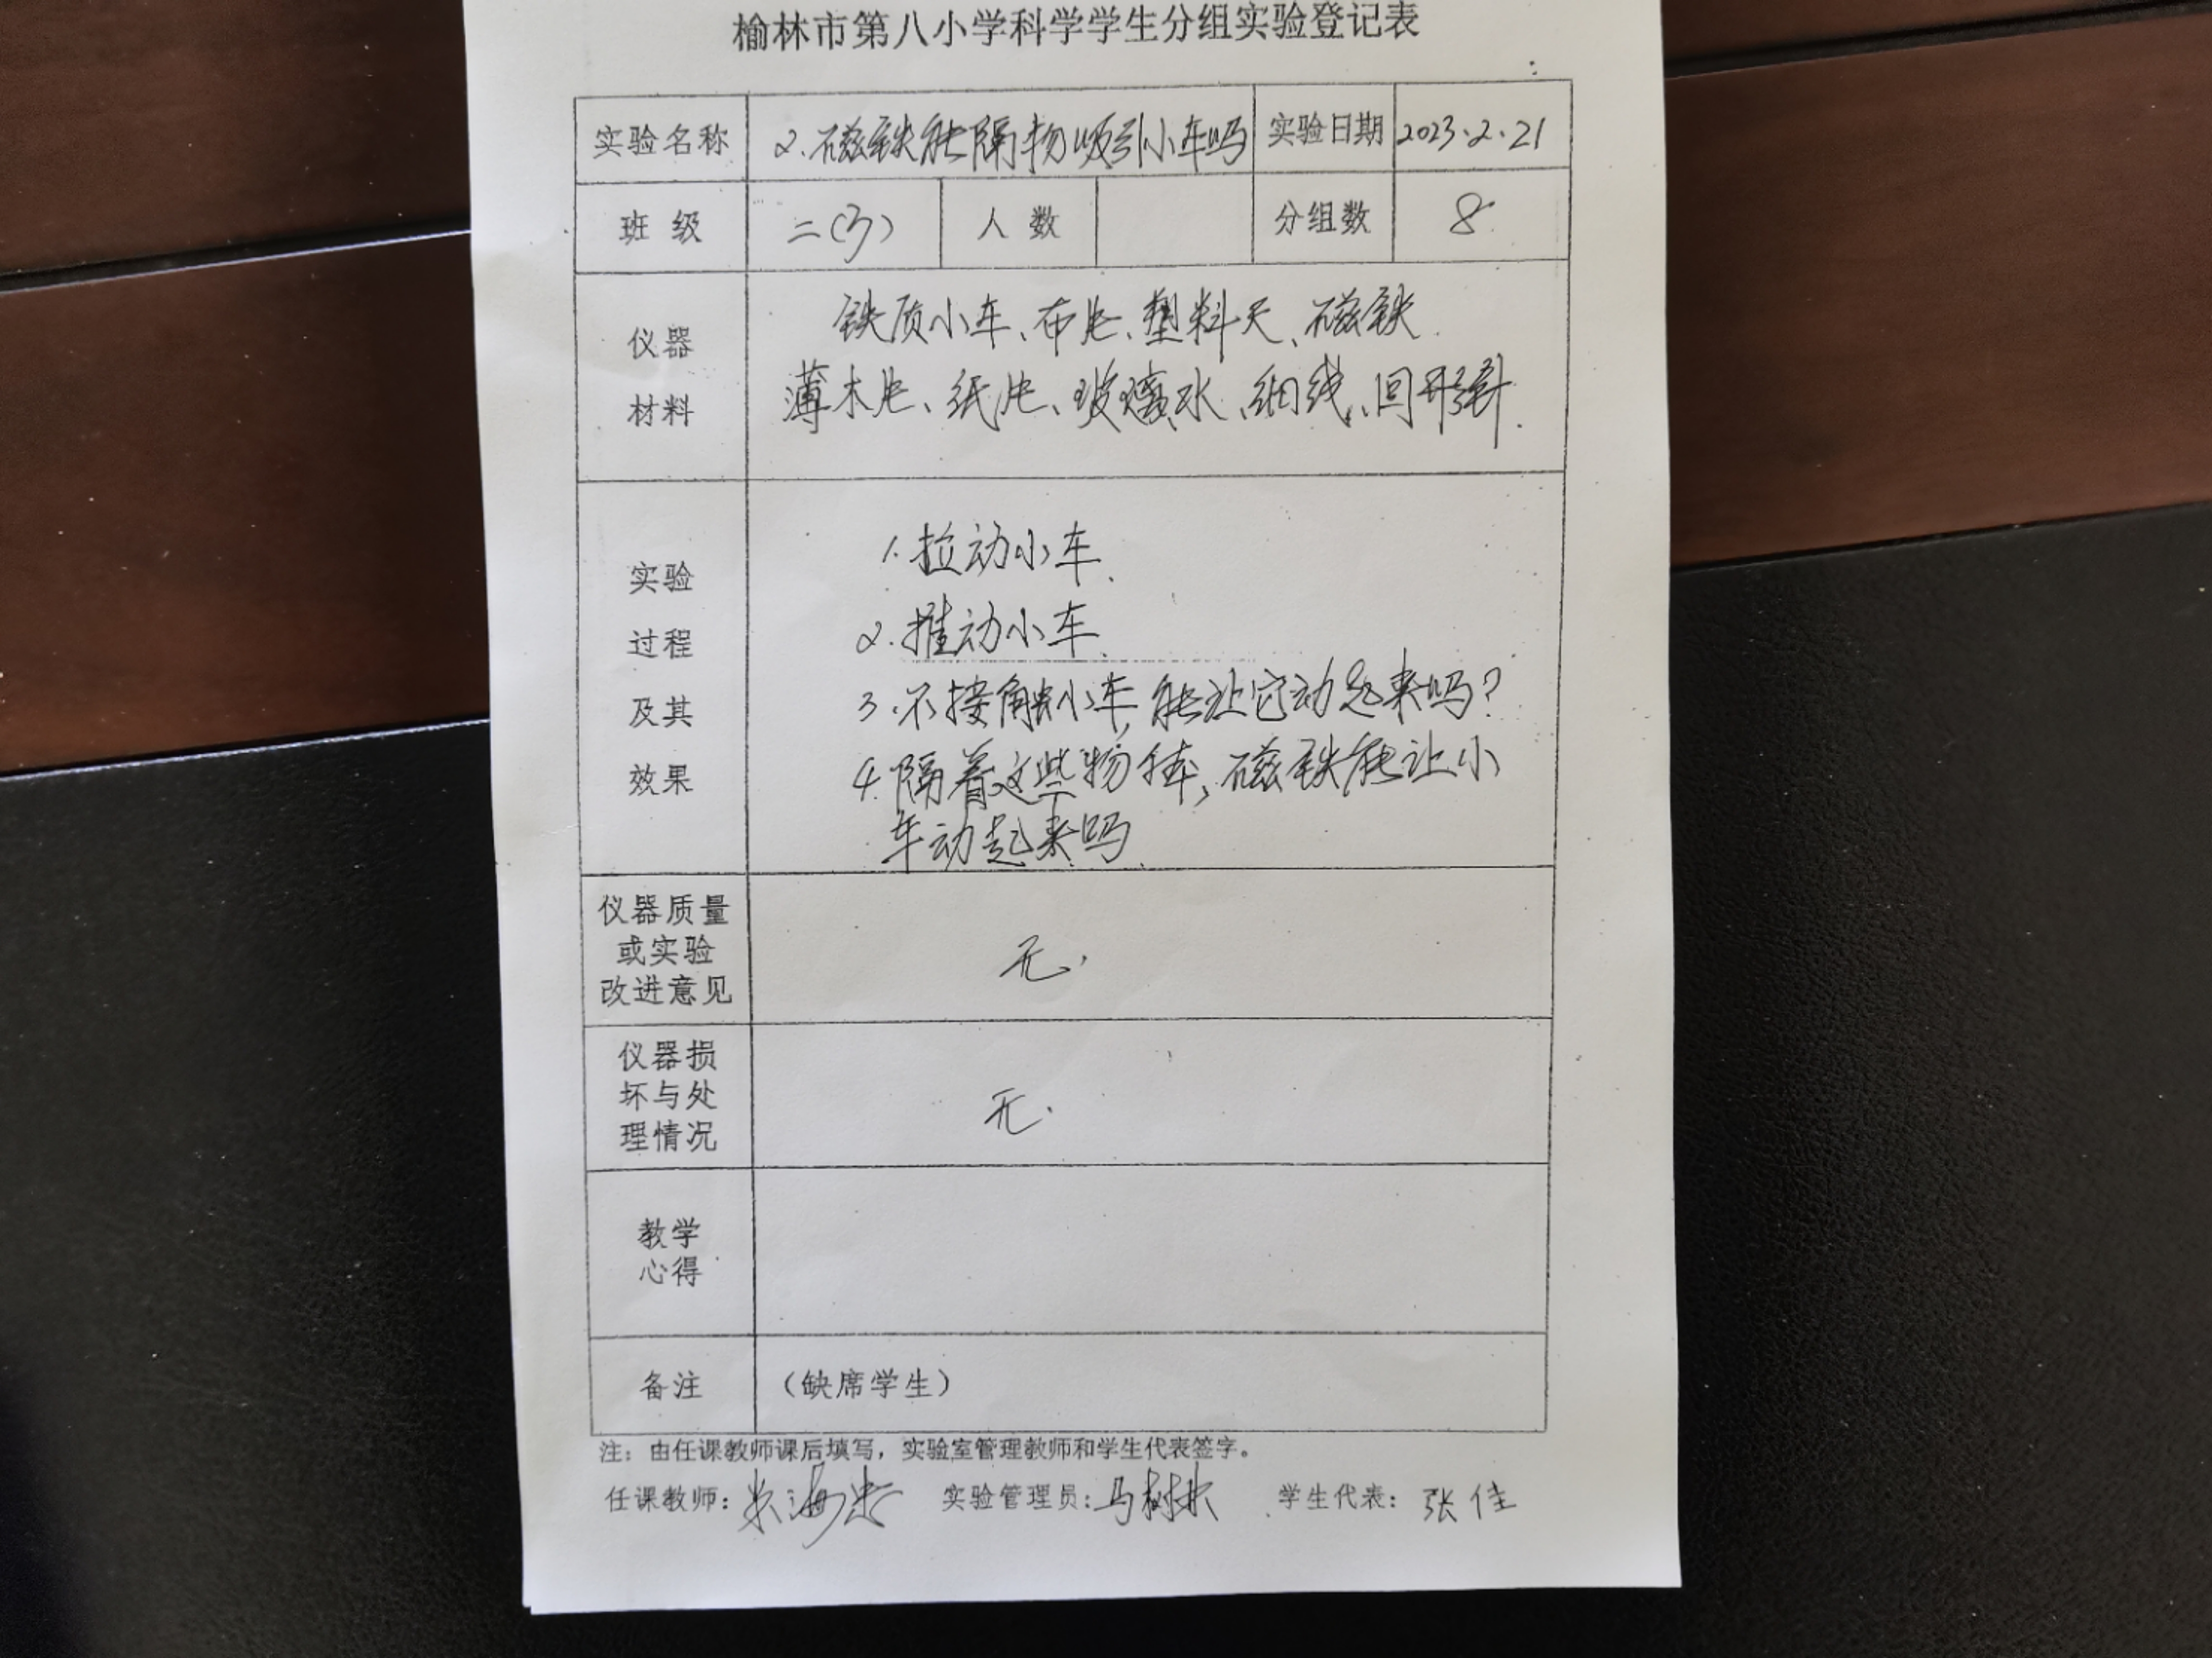 榆林市第八小学科学学生分组实验登记表
实验名称 2.磁铁能隔物吸引小车吗 实验日期 2023.2.21
班级 二(3) 人数 分组数 8
仪器
材料
铁质小车、布片、塑料尺、磁铁.
薄木片、纸片、玻璃水、细线、回形针.
实验
过程
及其
效果
1.拉动小车.
2.推动小车.
3.不接触小车,能让它动起来吗?
4.隔着这些物体,磁铁能让小
车动起来吗.
仪器质量
或实验
改进意见
无.
仪器损
坏与处
理情况
无.
教学
心得
备注 (缺席学生)
注:由任课教师课后填写,实验室管理教师和学生代表签字。
任课教师: 实验管理员:马树林 学生代表:张佳